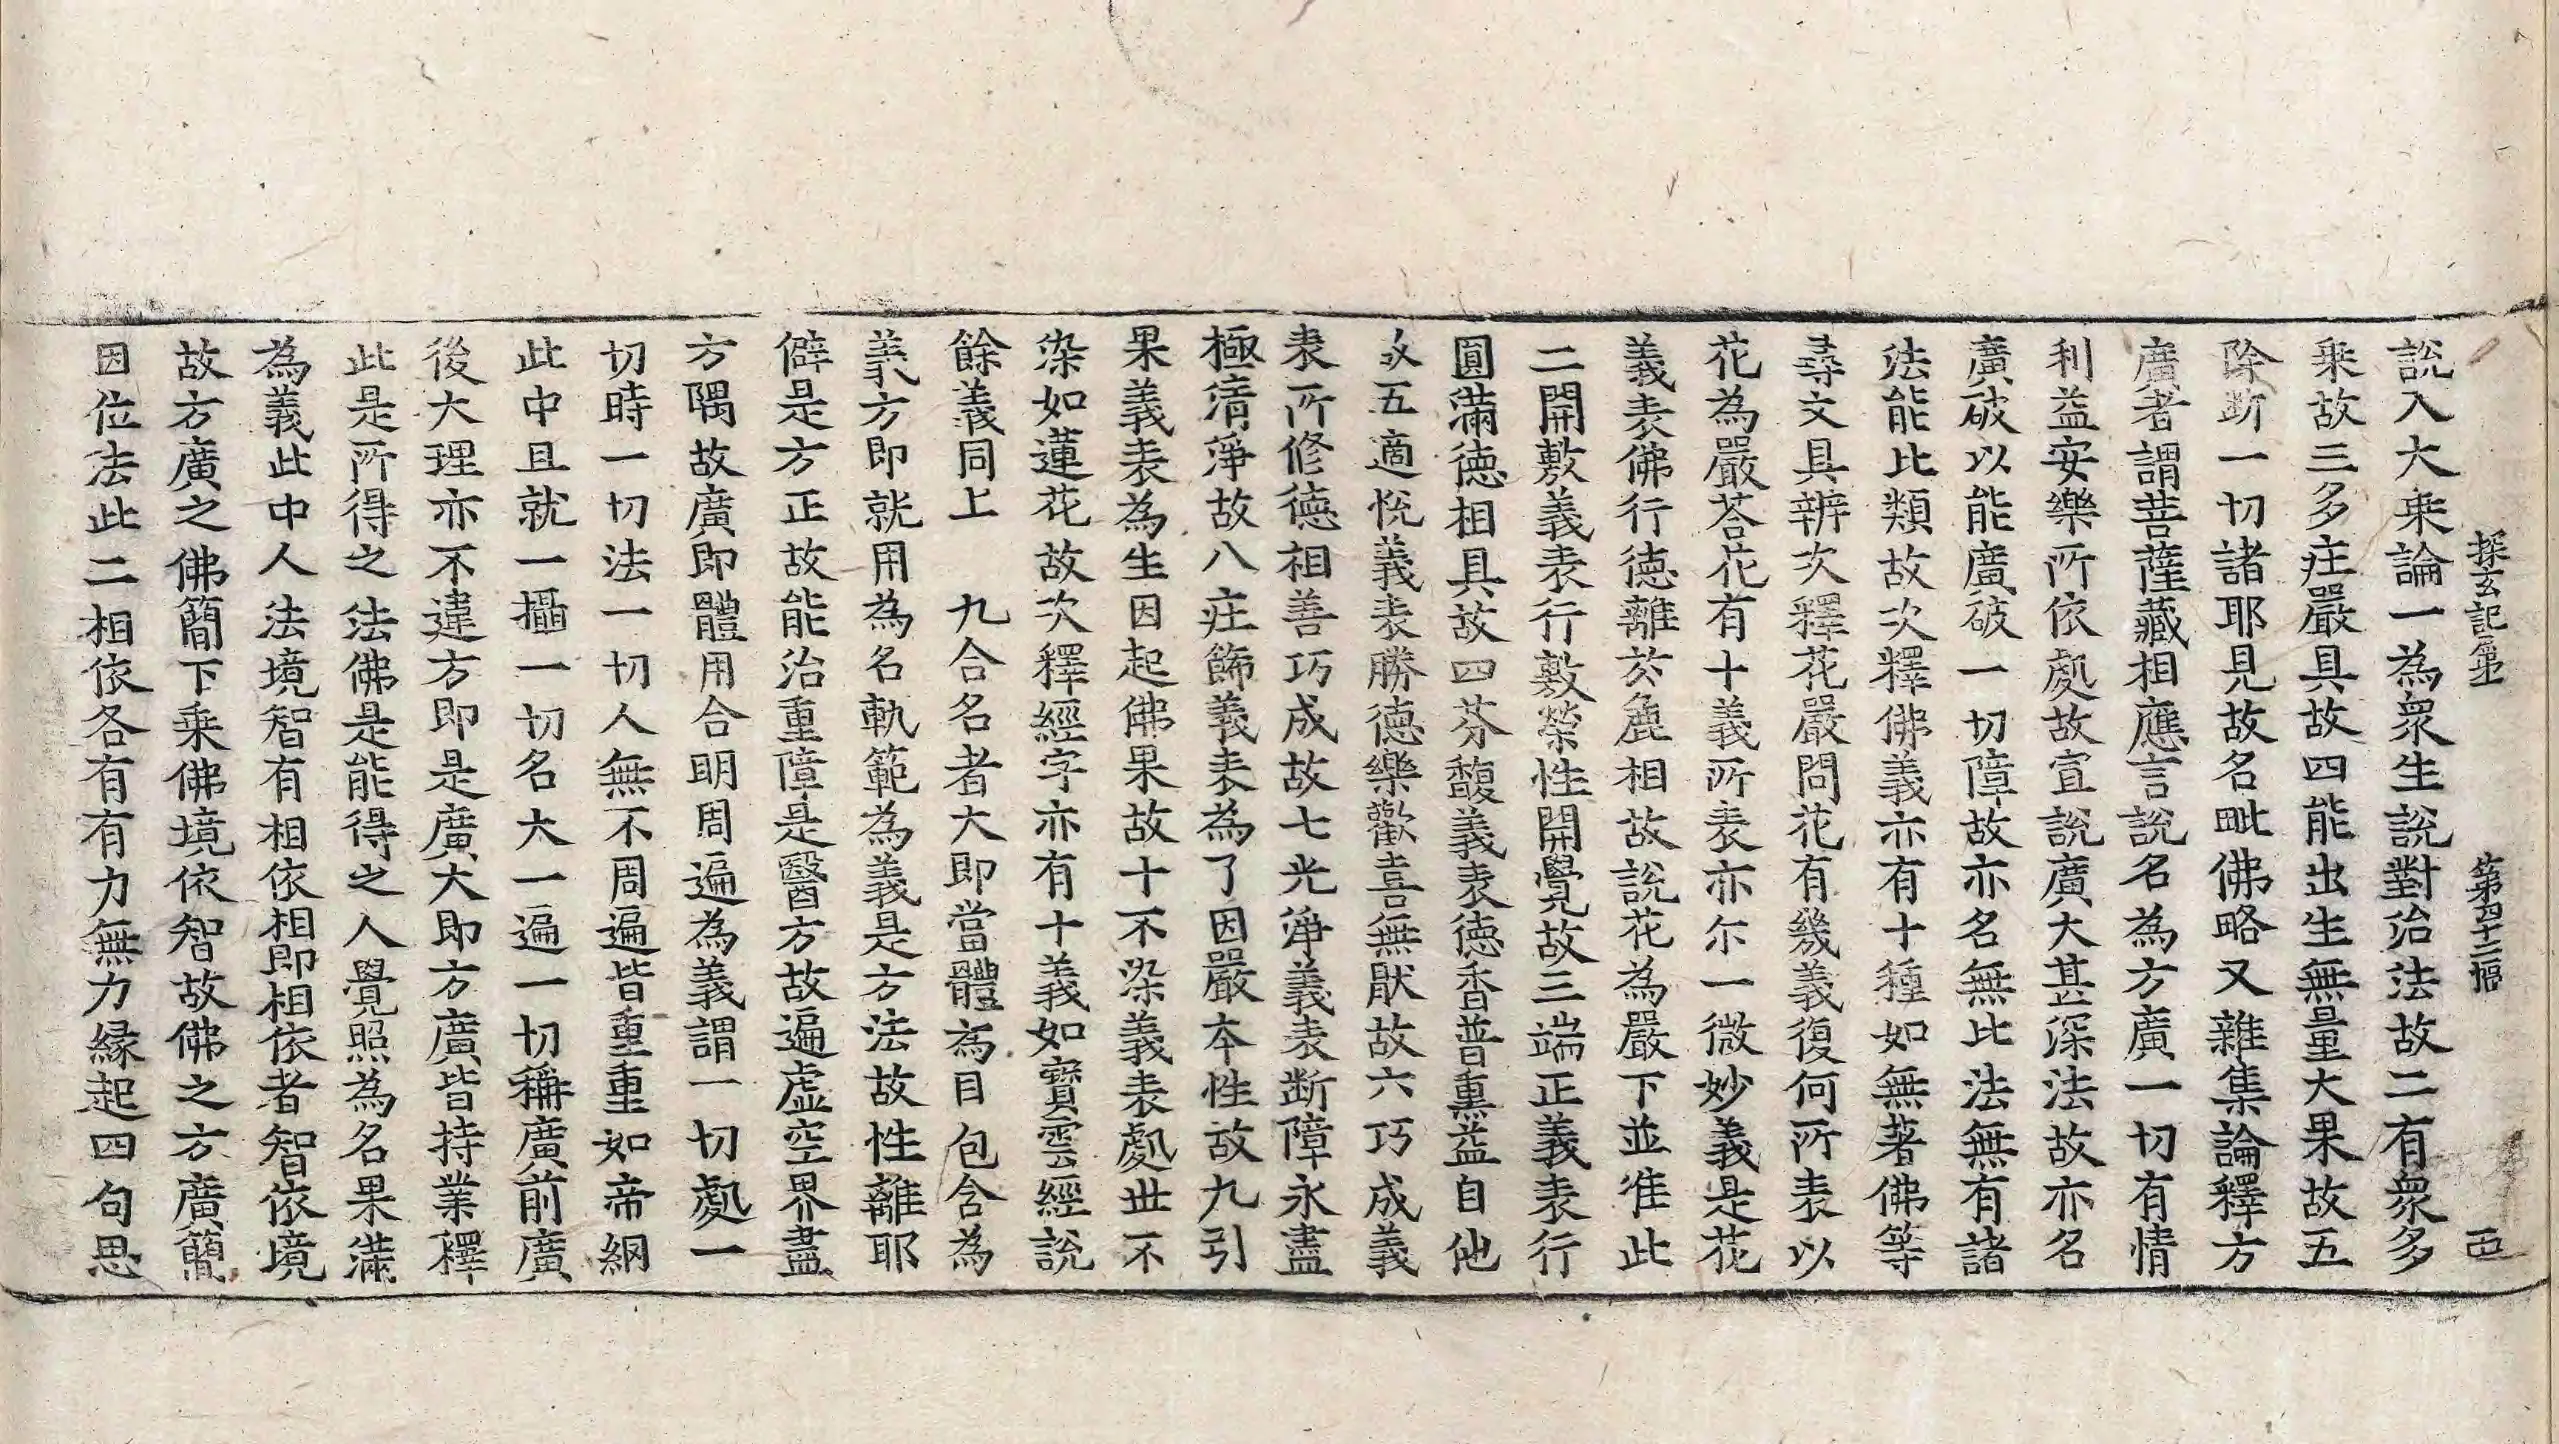 探玄記第一　第四十三幅　邑
說入大乘論一為衆生說對治法故二有衆多
乘故三多庄嚴具故四能出生無量大果故五
除断一切諸耶見故名毗佛略又雜集論釋方
廣者謂菩薩藏相應言說名為方廣一切有情
利益安樂所依處故宣說廣大甚深法故亦名
廣破以能廣破一切障故亦名無比法無有諸
法能比類故次釋佛義亦有十種如無著佛等
尋文具辨次釋花嚴問花有幾義復何所表以
花為嚴荅花有十義所表亦尒一微妙義是花
義表佛行徳離於麁相故說花為嚴下並准此
二開敷義表行敷榮性開覺故三端正義表行
圓滿徳相具故四芬馥義表徳香普熏益自他
故五適悅義表勝徳樂歡喜無猒故六巧成義
表所修徳相善巧成故七光淨義表断障永盡
極清淨故八庄飾義表為了因嚴本性故九引
果義表為生因起佛果故十不染義表處世不
染如蓮花故次釋經字亦有十義如寶雲經說
餘義同上　九合名者大即當體為目包含為
義方即就用為名軌範為義是方法故性離耶
僻是方正故能治重障是醫方故遍虛空界盡
方隅故廣即體用合明周遍為義謂一切處一
切時一切法一切人無不周遍皆重重如帝網
此中且就一攝一切名大一遍一切稱廣前廣
後大理亦不違方即是廣大即方廣皆持業釋
此是所得之法佛是能得之人覺照為名果滿
為義此中人法境智有相依相即相依者智依境
故方廣之佛簡下乘佛境依智故佛之方廣簡
因位法此二相依各有有力無力緣起四句思